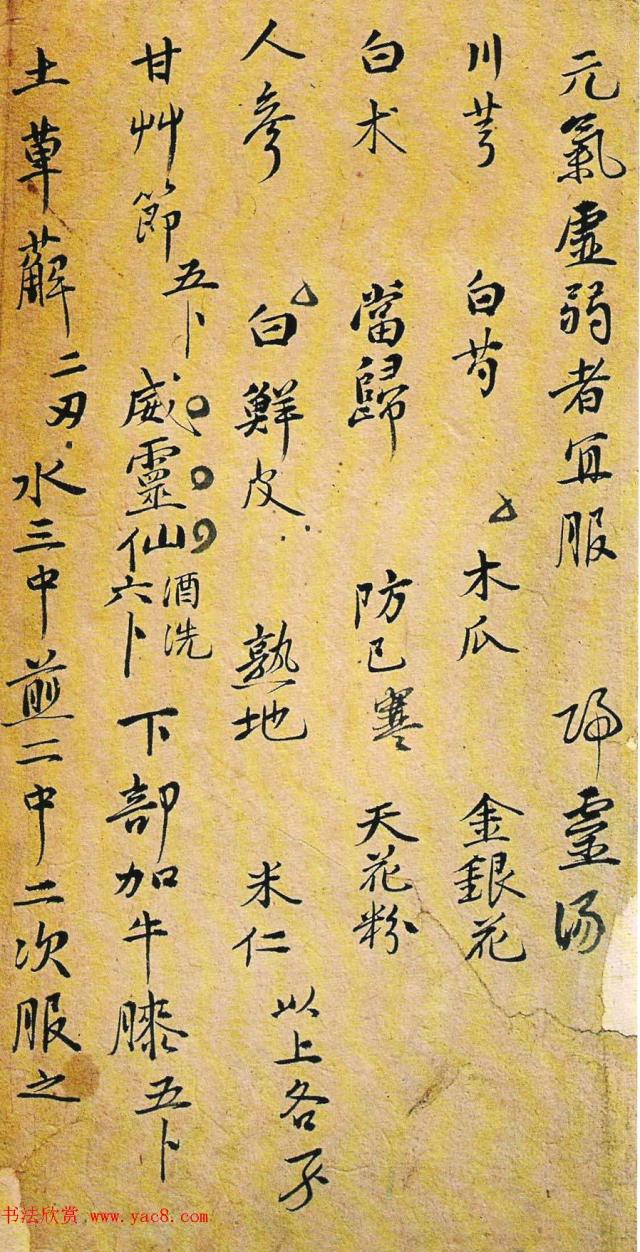 元氣虛弱者宜服 歸靈湯
川芎 白芍 木瓜 金銀花
白朮 當歸 防己 天花粉
人參 白鮮皮 熟地 米仁 以上各
甘艸節五卜 威靈仙六卜酒洗 下部加牛膝五卜
土萆薢二 水三中煎二中二次服之
书法欣赏 www.yac8.com